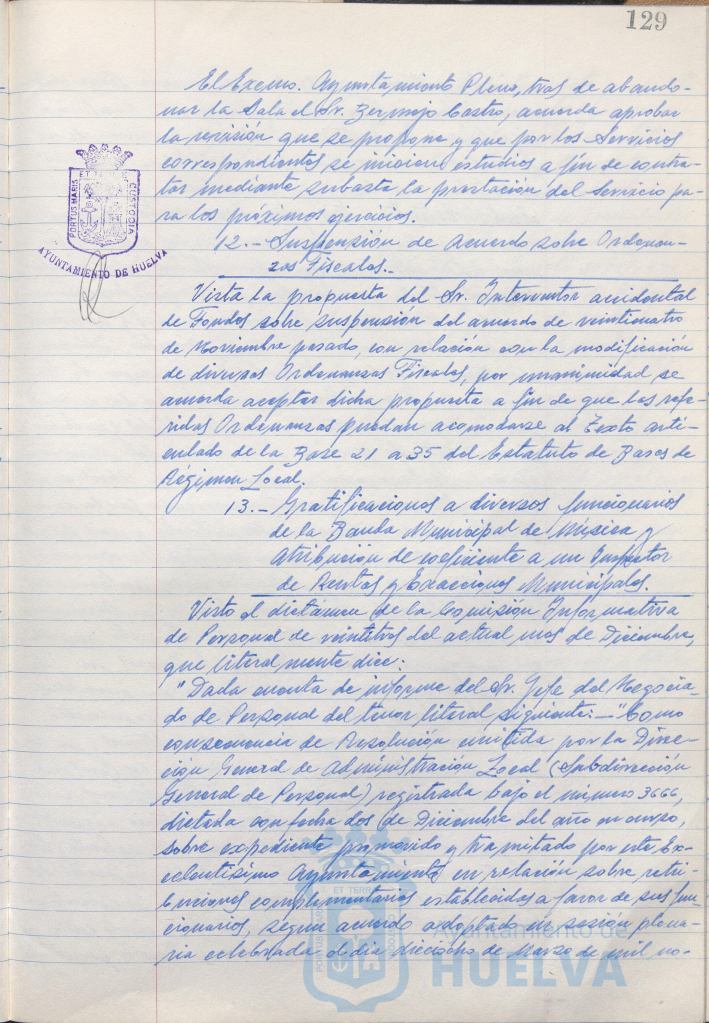 129
El Excmo. Ayuntamiento Pleno, tras de abando-
nar la Sala el Sr. Bermejo Castro, acuerda aprobar
la revisión que se propone y que por los Servicios
correspondientes se inicien estudios a fin de contra-
tar mediante subasta la prestación del Servicio pa-
ra los próximos ejercicios.
12.- Suspensión de acuerdo sobre Ordenan-
zas Fiscales.-
Vista la propuesta del Sr. Interventor accidental
de Fondos sobre suspensión del acuerdo de veinticuatro
de Noviembre pasado, con relación con la modificación
de diversas Ordenanzas Fiscales, por unanimidad se
acuerda aceptar dicha propuesta a fin de que las refe-
ridas Ordenanzas puedan acomodarse al Texto arti-
culado de la Base 21 a 35 del Estatuto de Bases de
Régimen Local.
13.- Gratificaciones a diversos funcionarios
de la Banda Municipal de Música y
atribución de coeficiente a un Inspector
de Rentas y Exacciones Municipales.
Visto el dictámen de la Comisión Informativa
de Personal de veintitres del actual mes de Diciembre,
que literalmente dice:
"Dada cuenta de informe del Sr. Jefe del Negocia-
do de Personal del tenor literal siguiente:- "Como
consecuencia de Resolución emitida por la Direc-
ción General de Administración Local (Subdirección
General de Personal) registrada bajo el número 3666,
dictada con fecha dos de Diciembre del año en curso,
sobre expediente promovido y tramitado por este Ex-
celentísimo Ayuntamiento en relación sobre retri-
buciones complementarias establecidas a favor de sus fun-
cionarios, según acuerdo adoptado en sesión plena-
ria celebrada el día dieciocho de Marzo de mil no-
PORTUS MARIS ET TERRAE CUSTODIA
AYUNTAMIENTO DE HUELVA
PORTUS MARIS ET TERRAE CUSTODIA
Ayuntamiento de
HUELVA